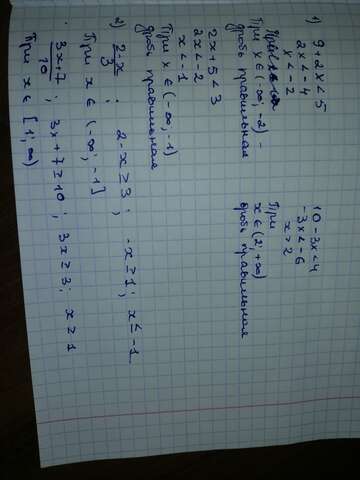 1) 9+2x<5
2x<-4
x<-2
При x ∈ (-∞; -2) -
дробь правильная
10-3x<4
-3x<-6
x>2
При
x ∈ (2; +∞)
дробь правильная
2x+5<3
2x<-2
x<-1
При x ∈ (-∞; -1)
дробь правильная
2) (2-x)/3 ; 2-x≥3; -x≥1; x≤-1
При x ∈ (-∞; -1]
(3x+7)/10 ; 3x+7≥10; 3x≥3; x≥1
При x ∈ [1; ∞)